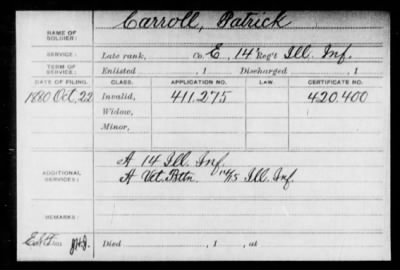 Carroll, Patrick
NAME OF SOLDIER:
SERVICE: Late rank, Co. E, 14 Reg't Ill. Inf.
TERM OF SERVICE: Enlisted , 1 Discharged , 1
DATE OF FILING. CLASS. APPLICATION NO. LAW. CERTIFICATE NO.
1880 Oct, 22 Invalid, 411.275 420.400
Widow,
Minor,
ADDITIONAL SERVICES:
A 14 Ill. Inf.
A Vet. Battn. 14/15 Ill. Inf.
REMARKS:
Died , 1 , at